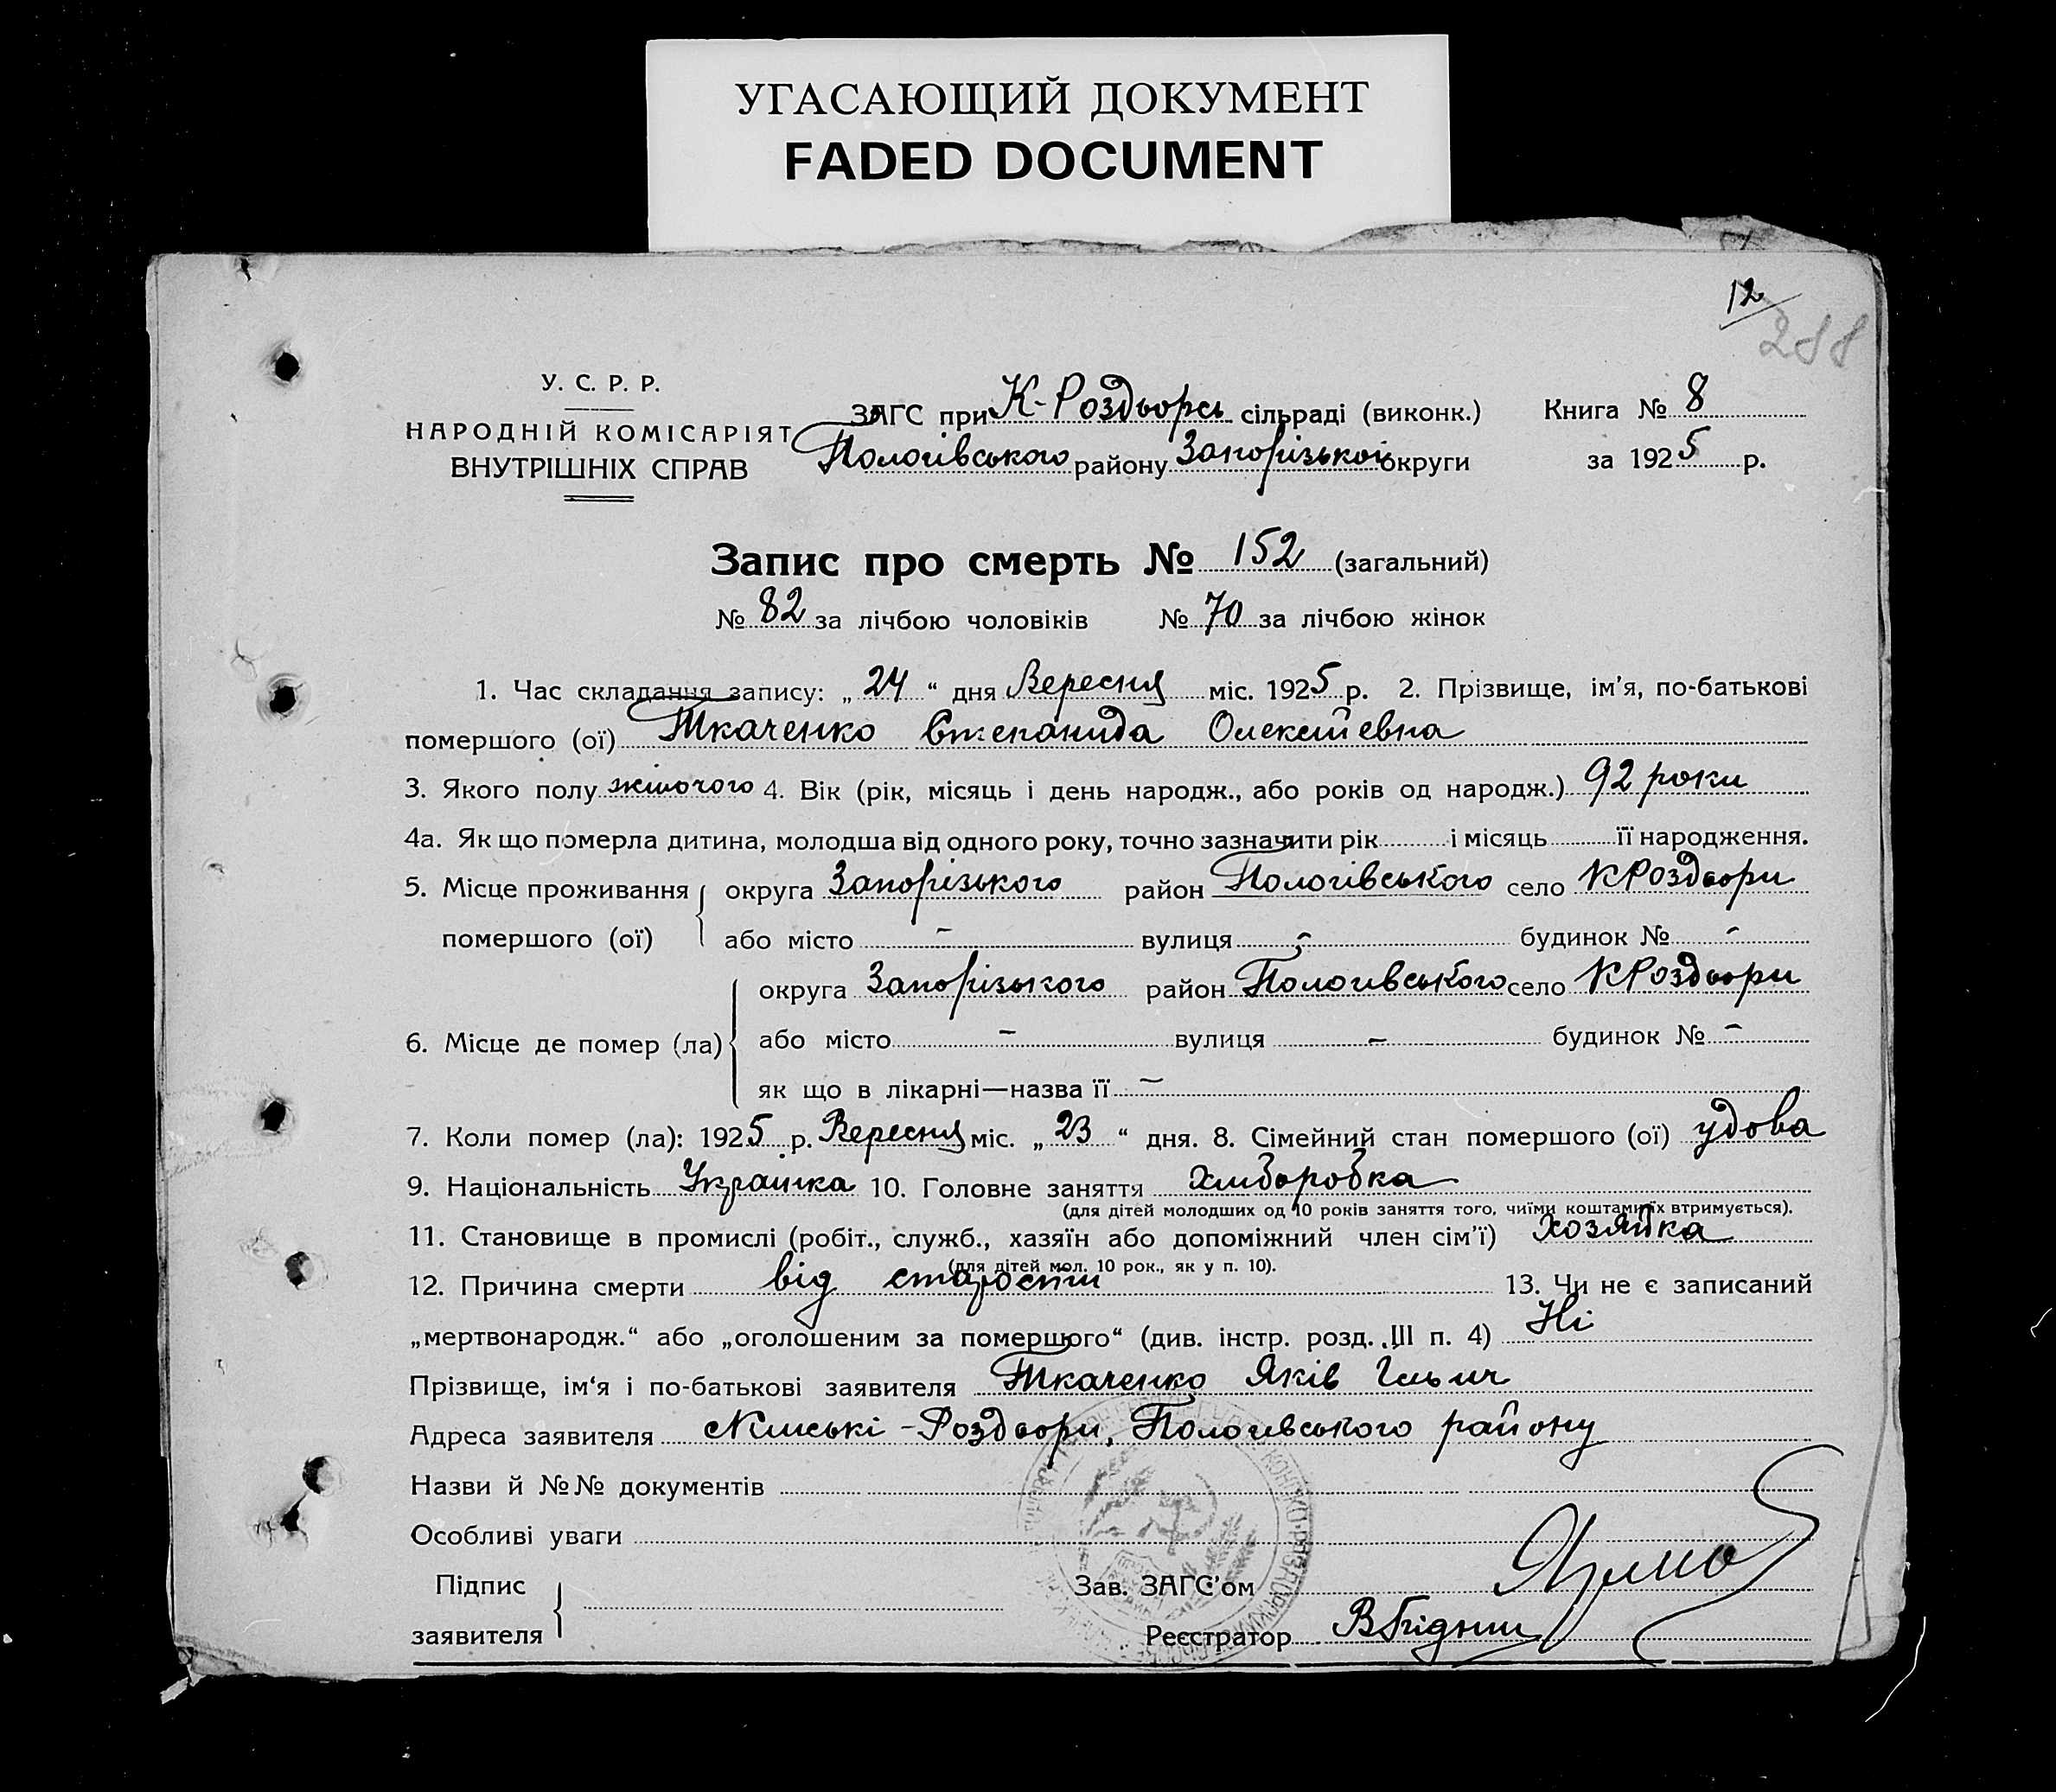 УГАСАЮЩИЙ ДОКУМЕНТ
FADED DOCUMENT
12
288
У. С. Р. Р.
НАРОДНІЙ КОМІСАРІЯТ
ВНУТРІШНІХ СПРАВ
ЗАГС при К-Роздорсь сільраді (виконк.)
Пологівського району Запорізької округи
Книга № 8
за 1925 р.
Запис про смерть № 152 (загальний)
№ 82 за лічбою чоловіків № 70 за лічбою жінок
1. Час складання запису: „ 24 “ дня Вересня міс. 1925 р. 2. Прізвище, ім’я, по-батькові
помершого (ої) Ткаченко Степанида Олексіевна
3. Якого полу жіночого 4. Вік (рік, місяць і день народж., або років од народж.) 92 роки
4а. Як що померла дитина, молодша від одного року, точно зазначити рік і місяць її народження.
5. Місце проживання помершого (ої) округа Запорізького район Пологівського село КРоздори
або місто – вулиця – будинок № –
6. Місце де помер (ла) округа Запорізького район Пологивського село КРоздори
або місто – вулиця – будинок № –
як що в лікарні—назва її –
7. Коли помер (ла): 1925 р. Вересня міс. „ 23 “ дня. 8. Сімейний стан помершого (ої) удова
9. Національність Українка 10. Головне заняття хліборобка
(для дітей молодших од 10 років заняття того, чиїми коштами їх втримується).
11. Становище в промислі (робіт., служб., хазяїн або допоміжний член сім’ї) хозяйка
(для дітей мол. 10 рок., як у п. 10).
12. Причина смерти від старости 13. Чи не є записаний
„мертвонародж.“ або „оголошеним за помершого“ (див. інстр. розд. III п. 4) Ні
Прізвище, ім‘я і по-батькові заявителя Ткаченко Яків Ільич
Адреса заявителя Кінські-Роздори, Пологивського району
Назви й №№ документів
Особливі уваги
Підпис
заявителя
Зав. ЗАГС’ом
Реєстратор